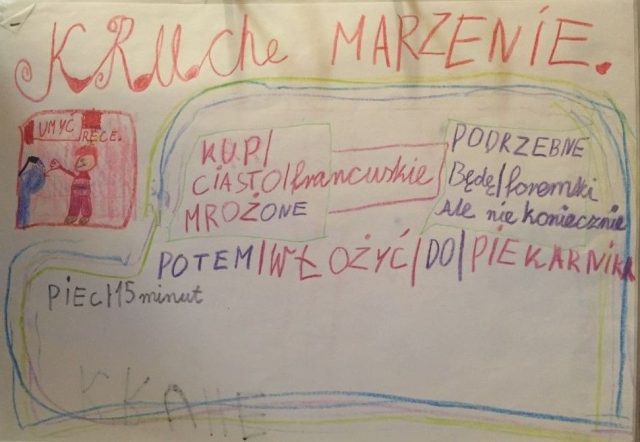 KRUche MARZENIE.
UMYĆ RĘCE.
KUP/
CIASTO/francuskie
MROŻONE
PODRZEBNE
Będę/foremki
Ale nie koniecznie
POTEM/WŁOŻYĆ/DO/PIEKARNIKA
PIEC/15 minut